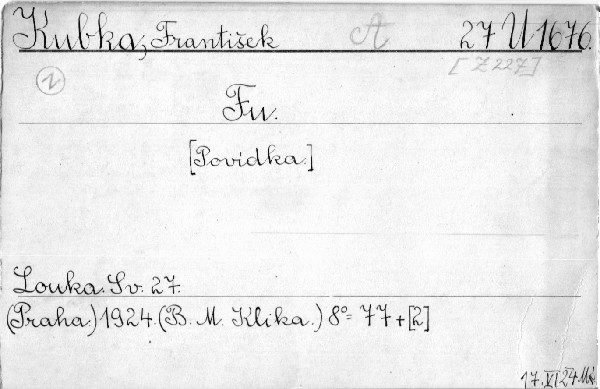 Kubka, František A 27 U 1676.
[Z 227]
N
Fu.
[Povídka.]
Louka. Sv. 27.
(Praha.) 1924. (B. M. Klika.) 8º= 77+[2]
17. VI 24